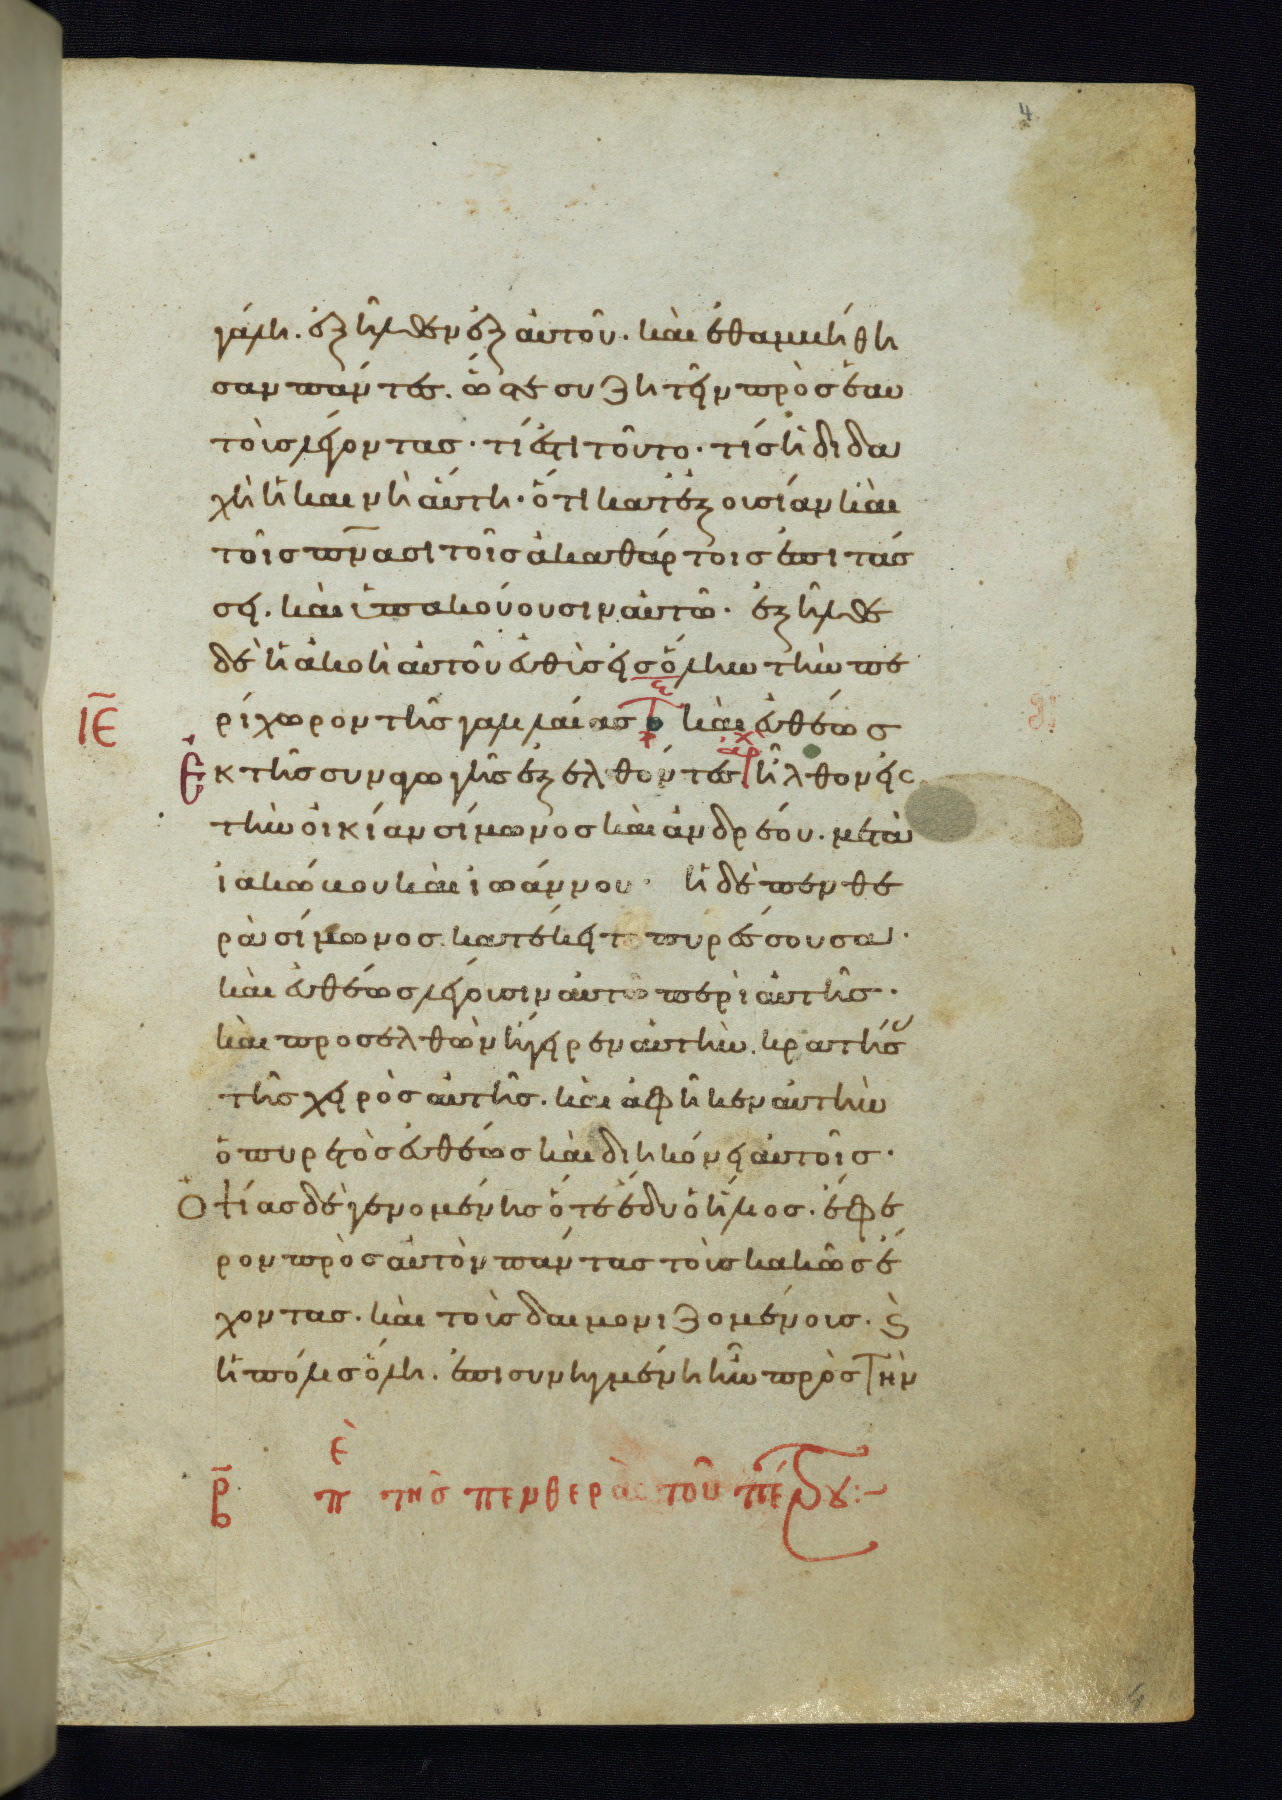 4
γάλη. ἐξῆλθεν ἐξ αὐτοῦ. καὶ ἐθαμβήθη
σαν πάντες. ὥστε συζητεῖν πρὸς ἑαυ
τοὺς λέγοντας· τί ἐστι τοῦτο· τίς ἡ διδα
χὴ ἡ καινὴ αὕτη· ὅτι κατ' ἐξουσίαν καὶ
τοῖς πν̅ασι τοῖς ἀκαθάρτοις ἐπιτάσ
σει. καὶ ὑπακούουσιν αὐτῶ· ἐξῆλθε
δὲ ἡ ἀκοὴ αὐτοῦ εὐθὺς εἰς ὅλην τὴν πε
ρίχωρον τῆς γαλιλαίας καὶ εὐθέως
ΙΕ̅
Ἐκ τῆς συναγωγῆς ἐξελθόντες ἦλθον εἰς
τὴν οἰκίαν σίμωνος καὶ ἀνδρέου. μετὰ
ἰακώβου καὶ ἰωάννου· ἡ δὲ πενθε
ρὰ σίμωνος κατέκειτο πυρέσσουσα.
καὶ εὐθέως λέγουσιν αὐτῶ περὶ αὐτῆς.
καὶ προσελθὼν ἤγειρεν αὐτὴν. κρατήσ
τῆς χειρὸς αὐτῆς. καὶ ἀφῆκεν αὐτὴν
ὁ πυρετὸς εὐθέως καὶ διηκόνει αὐτοῖς.
Ὀψίας δὲ γενομένης ὅτε ἔδυ ὁ ἥλιος. ἔφε
ρον πρὸς αὐτὸν πάντας τοὺς κακῶς ἔ
χοντας. καὶ τοὺς δαιμονιζομένους. ϗ
ἡ πόλις ὅλη. ἐπισυνηγμένη ἦν πρὸς τὴν
ε
π τῆς πενθερὰς τοῦ πέτρου:~